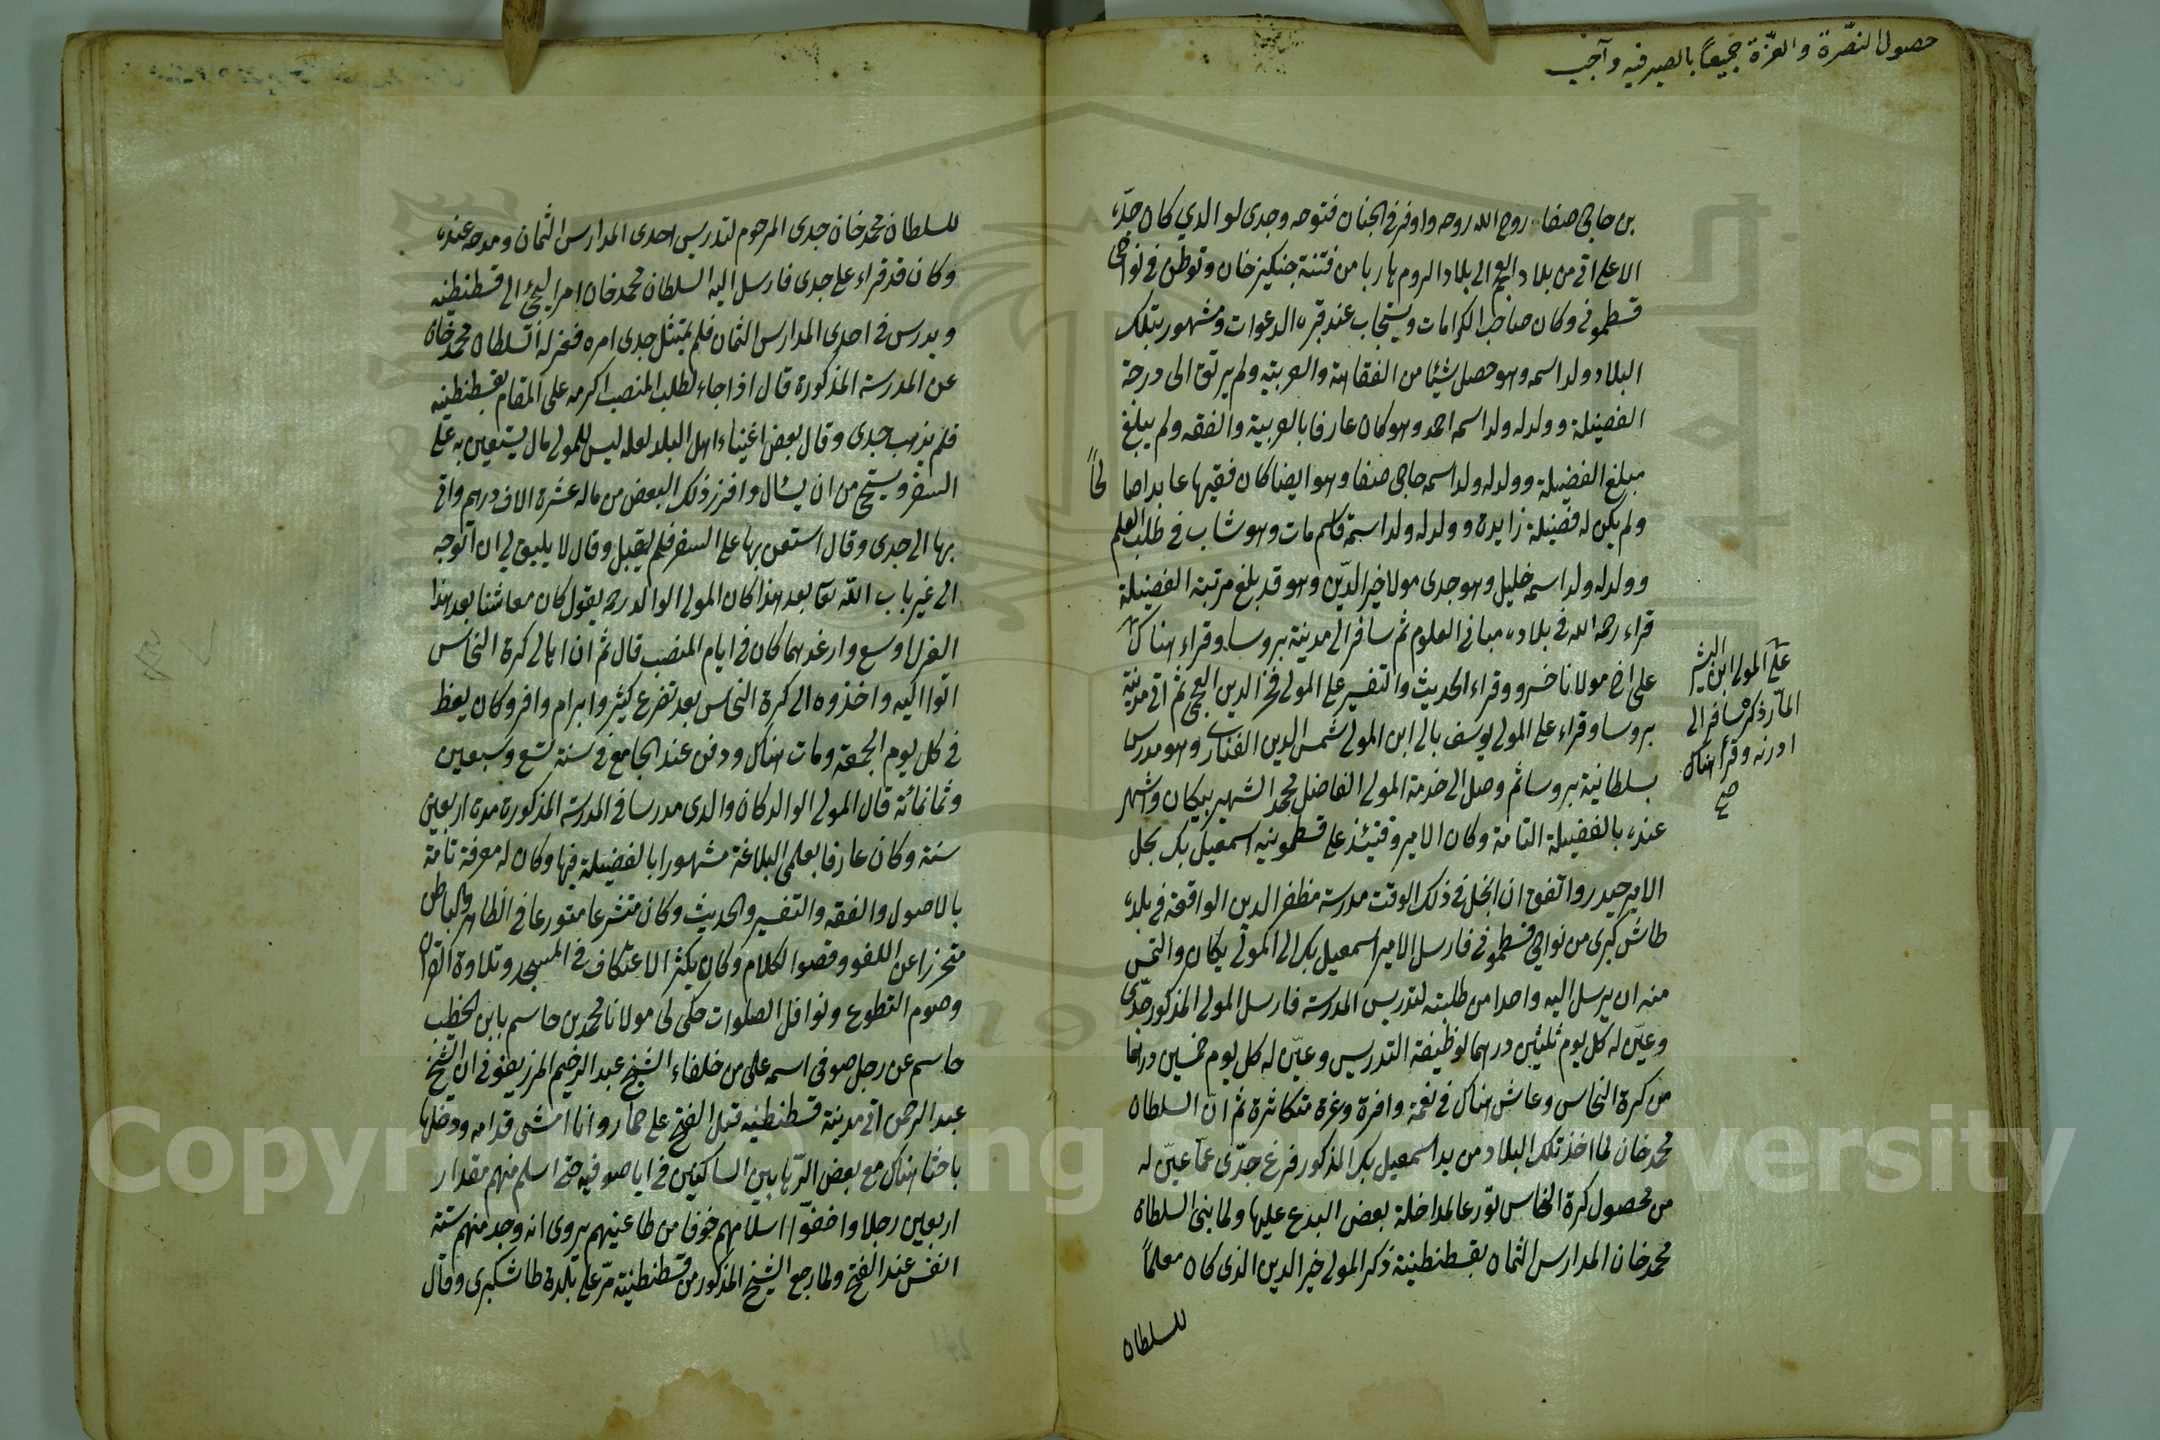 حصول النصّرة والعزّة جميعاً بالصبر فيه وآجب
بن حاجي صفا روح الله روحه واوفر في الجنان فتوحه وجدى لوالدي كان جدّه
الاعلى اتى من بلاد العجم الى بلاد الروم هاربا من فتنة جنكيز خان وتوطن في نواحى
قسطمونى وكان صاحب الكرامات ويستجاب عند قبره الدعوات ومشهور بتلك
البلاد ولد اسمه وهو حصل شيئا من الفقاهة والعربيه ولم يرتق الى درجة
الفضيلة وولد له ولد اسمه احمد وهو كان عارفا بالعربية والفقه ولم يبلغ
مبلغ الفضيلة وولد له ولد اسمه حاجى صفا وهو ايضا كان فقيها عابدا صا لحاً
ولم يكن له فضيلة زايدة وولد له ولد اسمه قاسم مات وهو شاب في طلب العلم
وولد له ولد اسمه خليل وهو جدى مولا خير الدّين وهو قد بلغ مرتبة الفضيلة
قراء رحمه الله في بلاده مبانى العلوم ثم سافر الى مدينة بروسا وقراء هناك
على المولى ابن البشير
المارّ ذكره سافر الى
ادرنه وقرأ هناك
صح
على اخ مولانا خسرو وقراء الحديث والتفسير على المولى فخر الدين العجمى ثم اتى مدينة
بروسا وقراء على المولى يوسف بالى ابن المولى شمس الدين الفنارى وهو مدرس
بسلطانية بروسا ثم وصل الى خدمة المولى الفاضل محمد الشهير بيكان واشتهر
عنده بالفضيلة التامة وكان الامير وقتئذ على قسطمونيه اسمعيل بك نجل
الامير حيدر واتفق ان انحل في ذلك الوقت مدرسة مظفر الدين الواقعة في بلدة
طاش كبرى من نواحي قسطمونى فارسل الامير اسمعيل بك الى المولى يكان والتمس
منه ان يرسل اليه واحدا من طلبته لتدريس المدرسة فارسل المولى المذكور جدّى
وعيّن له كل يوم ثلثين درهما لوظيفة التدريس وعيّن له كل يوم خمسين درهما
من كرة النحاس وعاش هناك في نعمة وافرة وعزة متكاثرة ثم انّ السلطان
محمد خان لما اخذ تلك البلاد من يد اسمعيل بك المذكور فرغ جدّى عمّا عيّن له
من محصول كرة النحاس تورعا لمداخلة بعض البدع عليها ولما بنى السلطان
محمد خان المدارس الثمان بقسطنطينية ذكر المولى خير الدين الذى كان معلماً
للسلطان
للسلطان محمد خان جدى المرحوم لتدريس احدى المدارس الثمان ومدحه عنده
وكان قد قراء على جدى فارسل اليه السلطان محمد خان امرا ليجئ الى قسطنطنيه
ويدرس في احدى المدارس الثمان فلم يمتثل جدى امره فعزله السلطان محمد خان
عن المدرسة المذكورة قال اذا جاء لطلب المنصب اكرهه على المقام بقسطنطنيه
فلم يذهب جدى وقال بعض اغنياء اهل البلد لعله ليس للمولى مال يستعين به على
السفر ويستحى من ان يسئال وافرز ذلك البعض من ماله عشرة الاف درهم واتى
بها الى جدى وقال استعن بها على السفر فلم يقبل وقال لا يليق لي ان اتوجه
الى غير باب الله تعا بعد هذا كان المولى الوالد رحمه يقول كان معاشنا بعد هذا
العزل اوسع وارغد مما كان في ايام المنصب قال ثم ان اهالى كرة النحاس
اتوا اليه واخذوه الى كرة النحاس بعد تضرع كثير وابرام وافر وكان يعظ
في كل يوم الجمعة ومات هناك ودفن عند الجامع في سنة تسع وسبعين
وثمانمائة قال المولى الوالد كان والدى مدرسا في المدرسة المذكورة مدة اربعين
سنة وكان عارفا بعلمى البلاغة مشهورا بالفضيلة فيها وكان له معرفة تامة
بالاصول والفقه والتفسير والحديث وكان متشرعا متورعا في الظاهر والباطن
متحرزا عن اللغو وفضول الكلام وكان يكثر الاعتكاف في المسجد وتلاوة القرآن
وصوم التطوع ونوافل الصلوات حكى لى مولانا محمد بن حاسم بابن الخطيب
حاسم عن رجل صوفى اسمه على من خلفاء الشيخ عبد الرحيم المرزيفونى ان الشيخ
عبد الرحمن اتى مدينة قسطنطنيه قبل الفتح على حمار وانا امشى قدامه ودخلها
باحثا هناك مع بعض الرّهابين الساكنين في اياصوفيه حتى اسلم منهم مقدار
اربعين رجلا واخفوا اسلامهم خوفا من طاعنيهم يروى انه وجد منهم ستة
انفس عند الفتح ولما رجع الشيخ المذكور من قسطنطنية مرّ على بلدة طاشكبرى وقال
Copyright © King Saud University